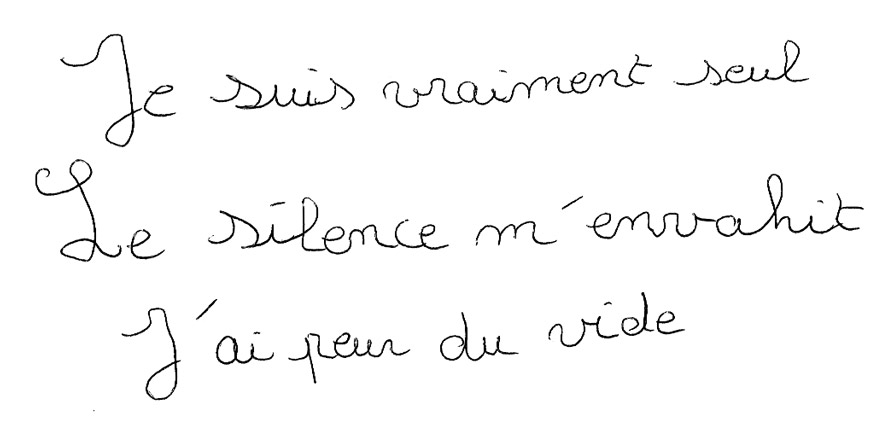 Je suis vraiment seul
Le silence m'envahit
J'ai peur du vide